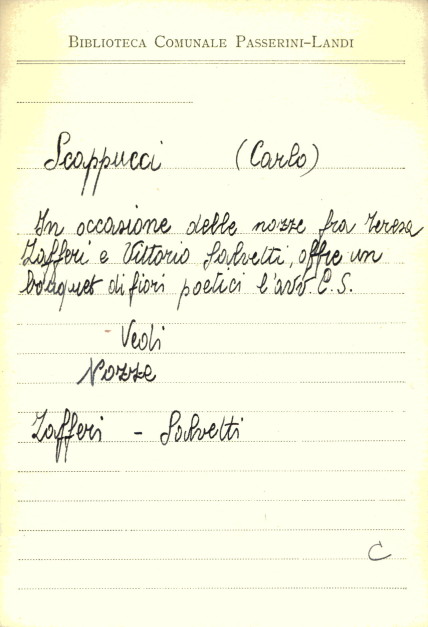 BIBLIOTECA COMUNALE PASSERINI-LANDI
Scappucci (Carlo)
In occasione delle nozze fra Teresa
Zafferi e Vittorio Salvetti, offre un
bouquet di fiori poetici l'avv. C. S.
Vedi
Nozze
Zafferi - Salvetti
C